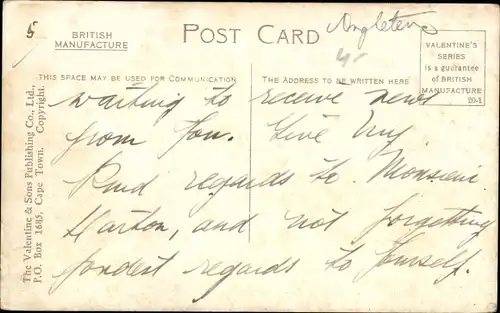 5
BRITISH
MANUFACTURE
POST CARD
Angleterre
VALENTINE'S
SERIES
is a guarantee
of BRITISH
MANUFACTURE
20-1
THIS SPACE MAY BE USED FOR COMMUNICATION
THE ADDRESS TO BE WRITTEN HERE
The Valentine & Sons Publishing Co., Ltd.,
P.O. Box 1685, Cape Town. Copyright.
waiting to receive news
from You. Give my
kind regards to Monsieur
Harton, and not forgetting
fondest regards to Yourself.